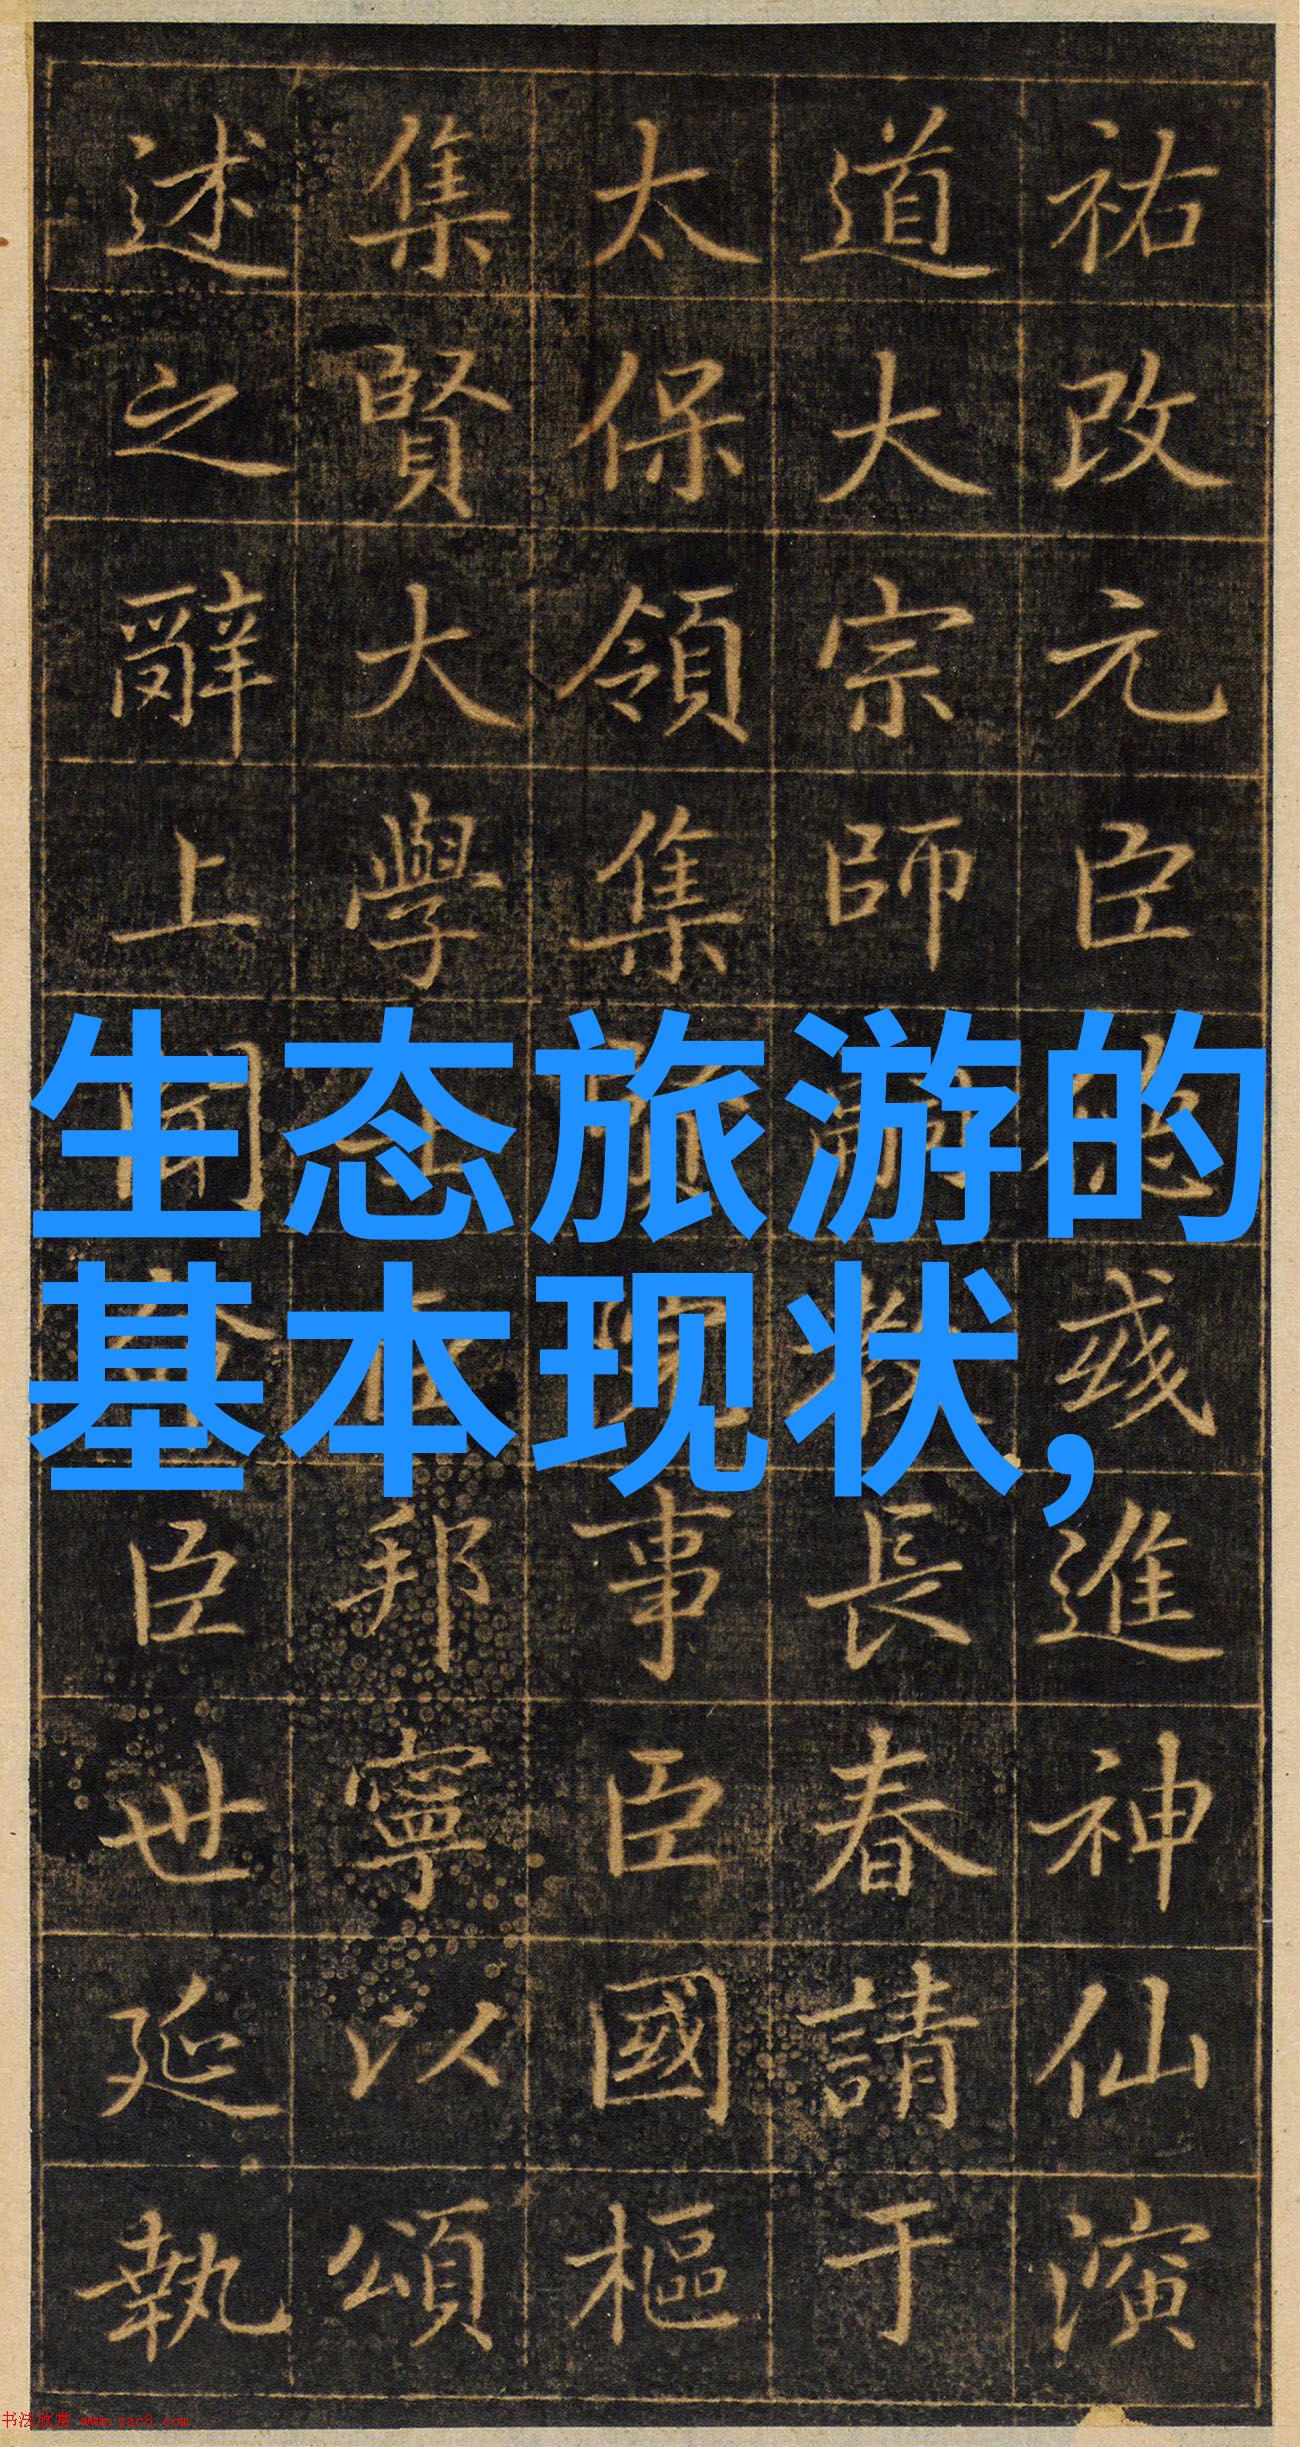 祐改元臣彧進神仙演
道大宗師教長春請于
太保領集賢院事臣國樞
集賢大學士臣邦寧以頌
述之辭上聞臣世延執
生态旅游的
基本现状，
书法欣赏 www.yac8.com